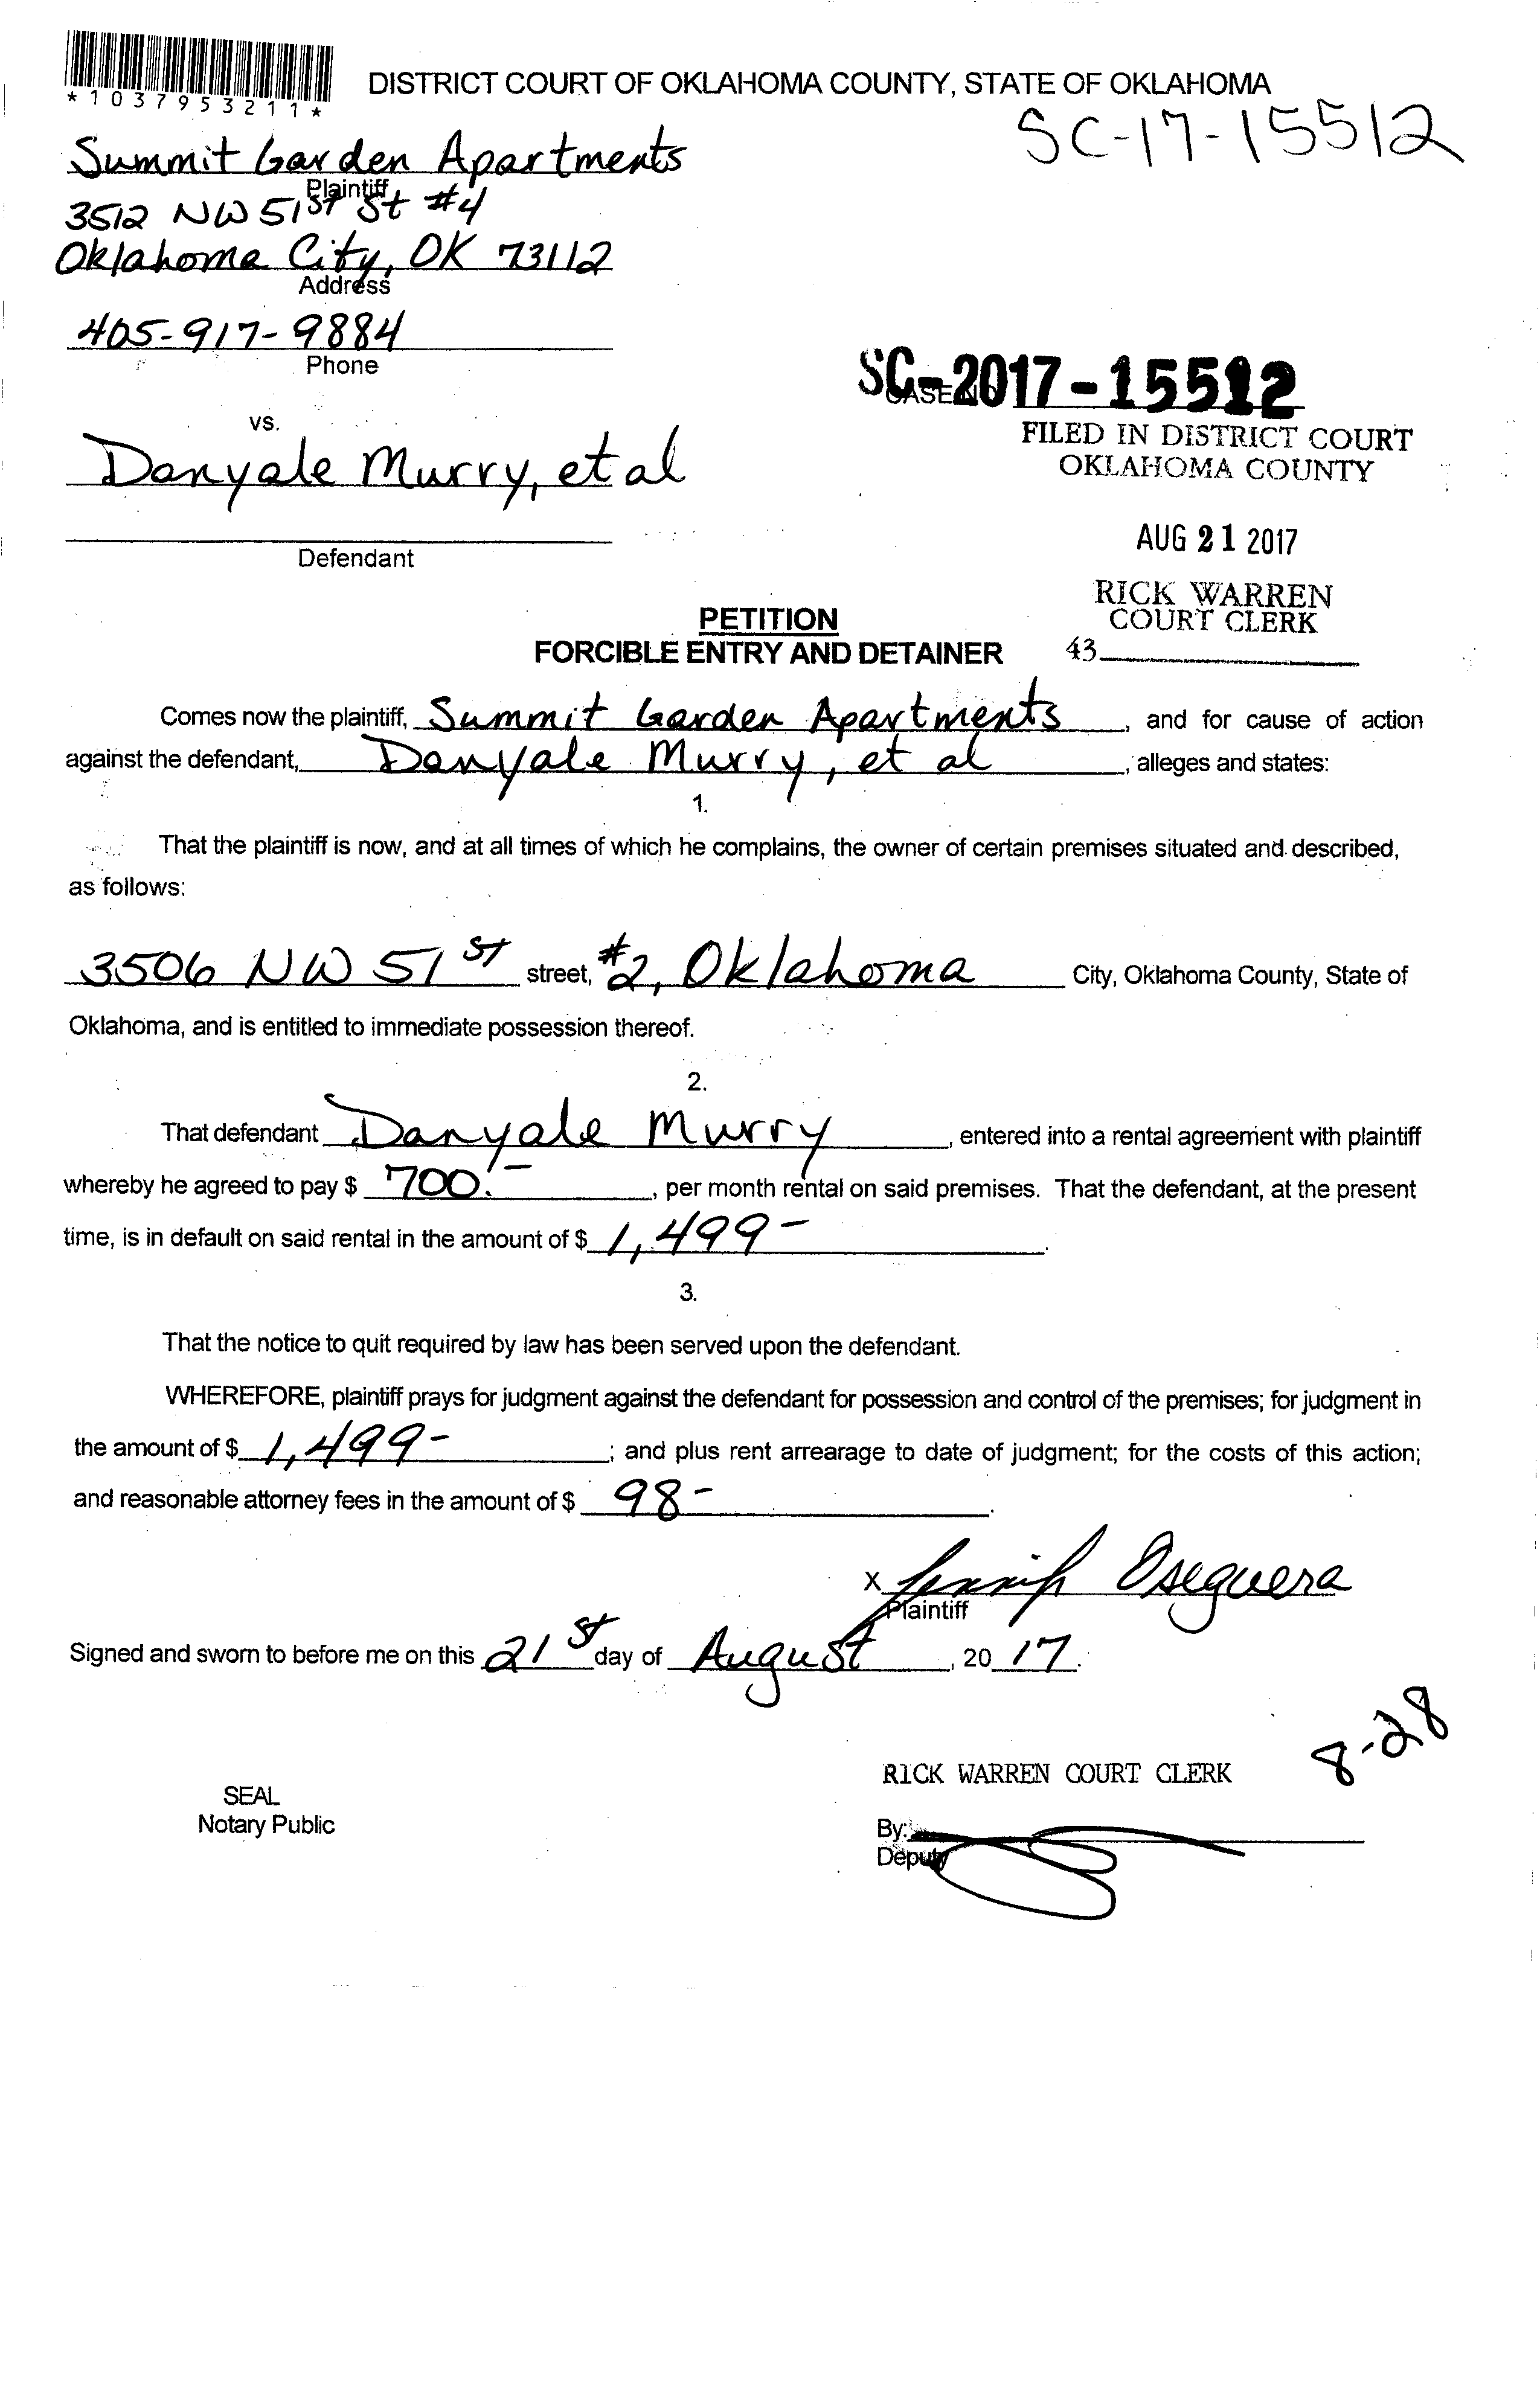 DISTRICT COURT OF OKLAHOMA COUNTY, STATE OF OKLAHOMA
*1037953211*
SC-17-15512
Summit Garden Apartments
Plaintiff
3512 NW 51st St #4
Oklahoma City, OK 73112
Address
405-917-9884
Phone
SC-2017-15512
CASE NO
vs.
FILED IN DISTRICT COURT
OKLAHOMA COUNTY
Danyale Murry, et al
AUG 21 2017
Defendant
RICK WARREN
COURT CLERK
43
PETITION
FORCIBLE ENTRY AND DETAINER
Comes now the plaintiff, Summit Garden Apartments, and for cause of action
against the defendant, Danyale Murry, et al, alleges and states:
1.
That the plaintiff is now, and at all times of which he complains, the owner of certain premises situated and described,
as follows:
3506 NW 51 ST street, #2, Oklahoma City, Oklahoma County, State of
Oklahoma, and is entitled to immediate possession thereof.
2.
That defendant Danyale Murry, entered into a rental agreement with plaintiff
whereby he agreed to pay $ 700.-, per month rental on said premises. That the defendant, at the present
time, is in default on said rental in the amount of $ 1,499-.
3.
That the notice to quit required by law has been served upon the defendant.
WHEREFORE, plaintiff prays for judgment against the defendant for possession and control of the premises; for judgment in
the amount of $ 1,499-; and plus rent arrearage to date of judgment; for the costs of this action;
and reasonable attorney fees in the amount of $ 98-.
X Jennif Oseguera
Plaintiff
Signed and sworn to before me on this 21st day of August, 20 17.
8-28
RICK WARREN COURT CLERK
SEAL
Notary Public
By:
Deputy